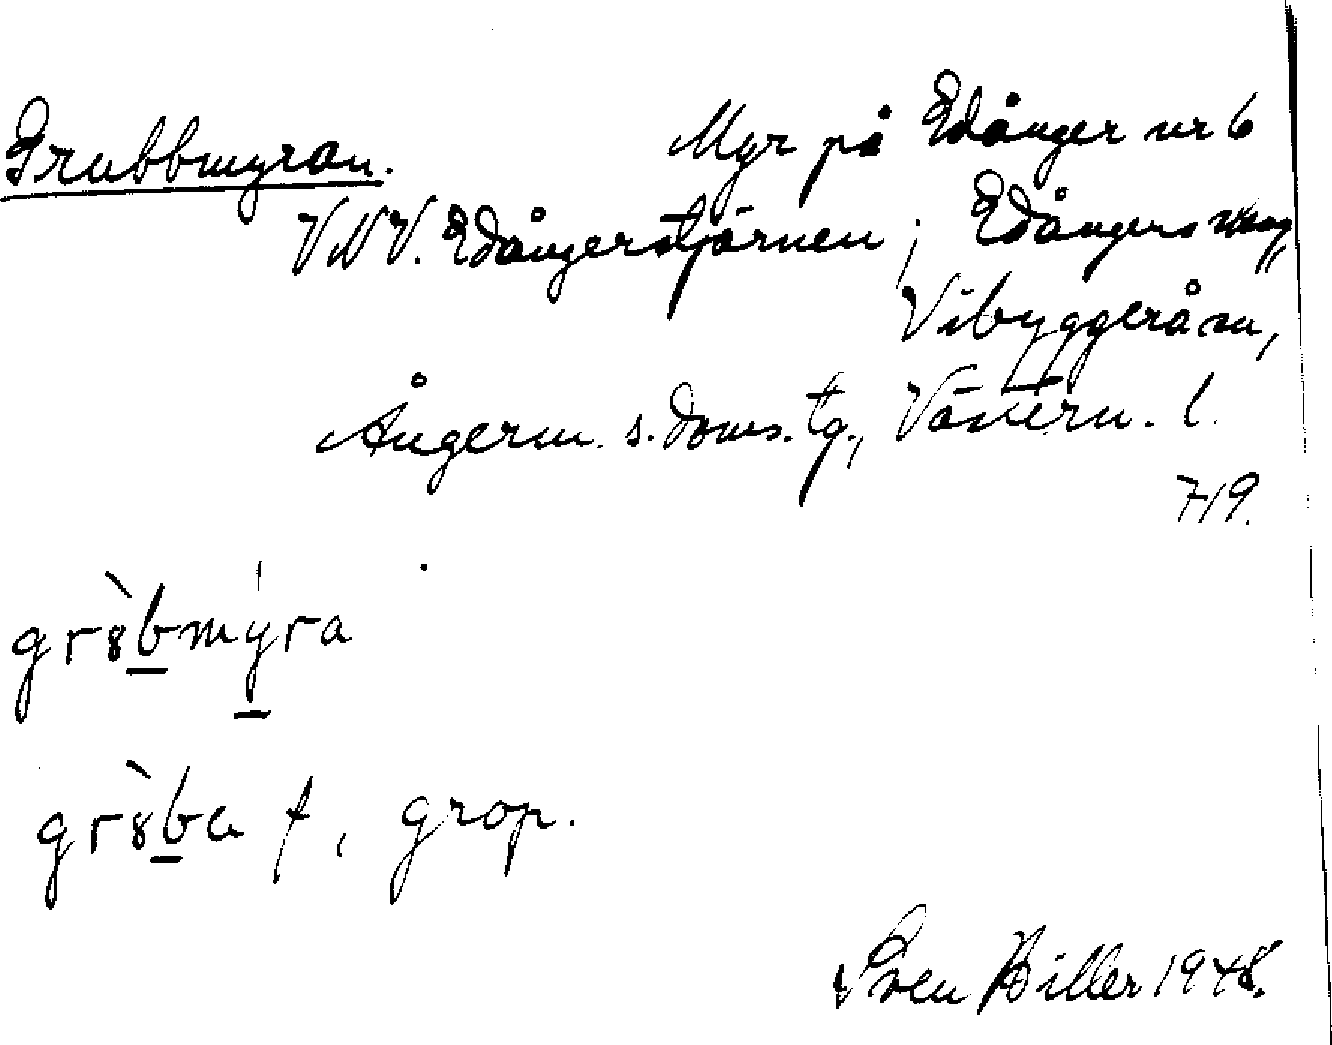 Grubbmyran. Myr på Edånger nr 6
VNV. Edångerstjärnen; Edångers
Vibyggerå sn,
Ångerm. s. doms. tg., Västern. l.
719.
grȣ̀bmýra
grȣ̀ba f, grop.
Sven Hiller 1948.